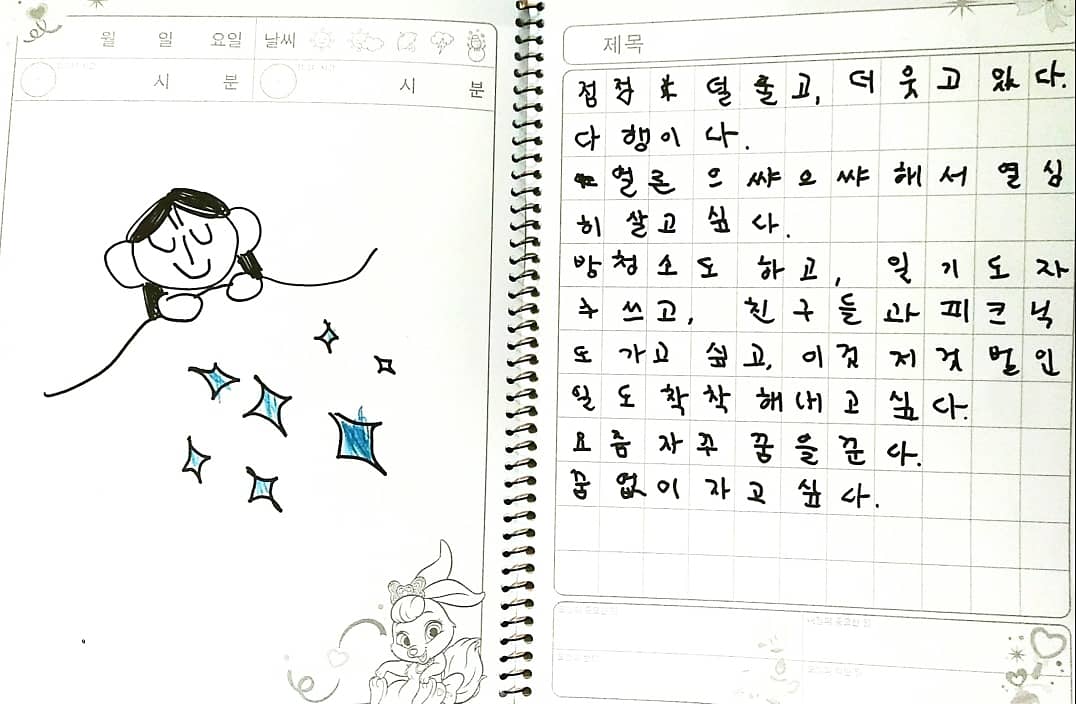 월 일 요일 날씨
시 분 시 분
제목
점점 덜 울고, 더 웃고 있다.
다행이다.
얼른 으쌰으쌰해서 열심
히 살고 싶다.
방청소도 하고, 일기도 자
주 쓰고, 친구들과 피크닉
도 가고 싶고, 이것저것 벌인
일도 착착 해내고 싶다.
요즘 자꾸 꿈을 꾼다.
꿈 없이 자고 싶다.